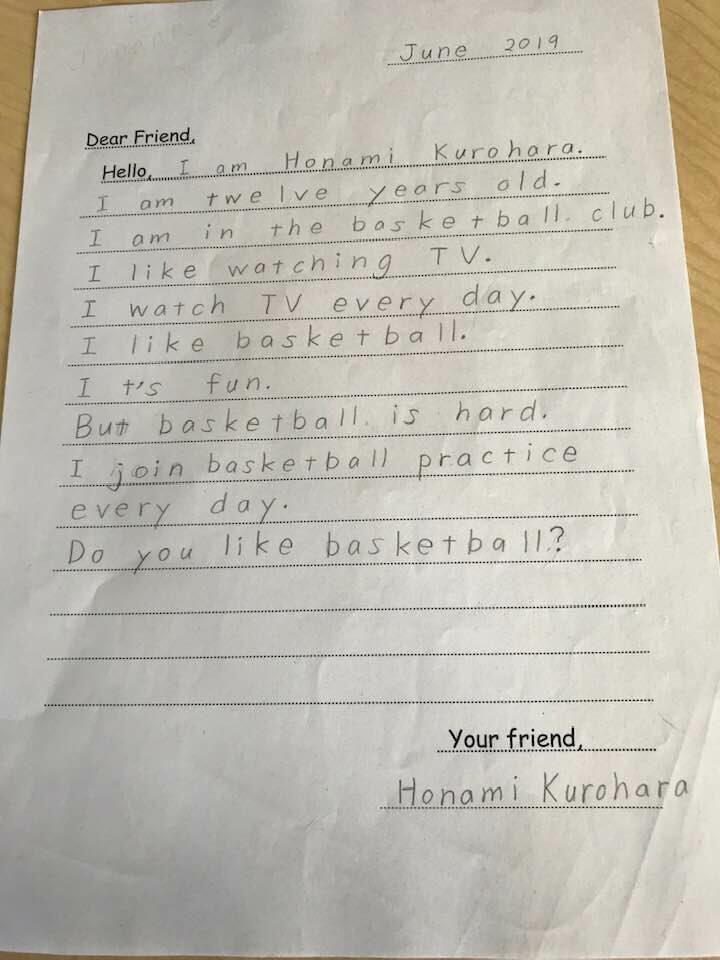 June 2019
Dear Friend,
Hello, I am Honami Kurohara.
I am twelve years old.
I am in the basketball club.
I like watching TV.
I watch TV every day.
I like basketball.
It's fun.
But basketball is hard.
I join basketball practice
every day.
Do you like basketball?
Your friend,
Honami Kurohara